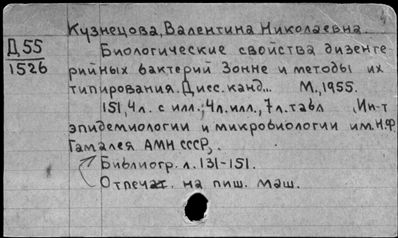 Кузнецова, Валентина Николаевна.
Д 55
1526
Биологические свойства дизенте-
рийных бактерий Зонне и методы их
типирования. Дисс. канд... М., 1955.
151, 4 л. с илл.; 4 л. илл., 7 л. табл Ин-т
эпидемиологии и микробиологии им. Н.Ф.
Гамалея АМН СССР.
Библиогр. л. 131-151.
Отпечат. на пиш. маш.